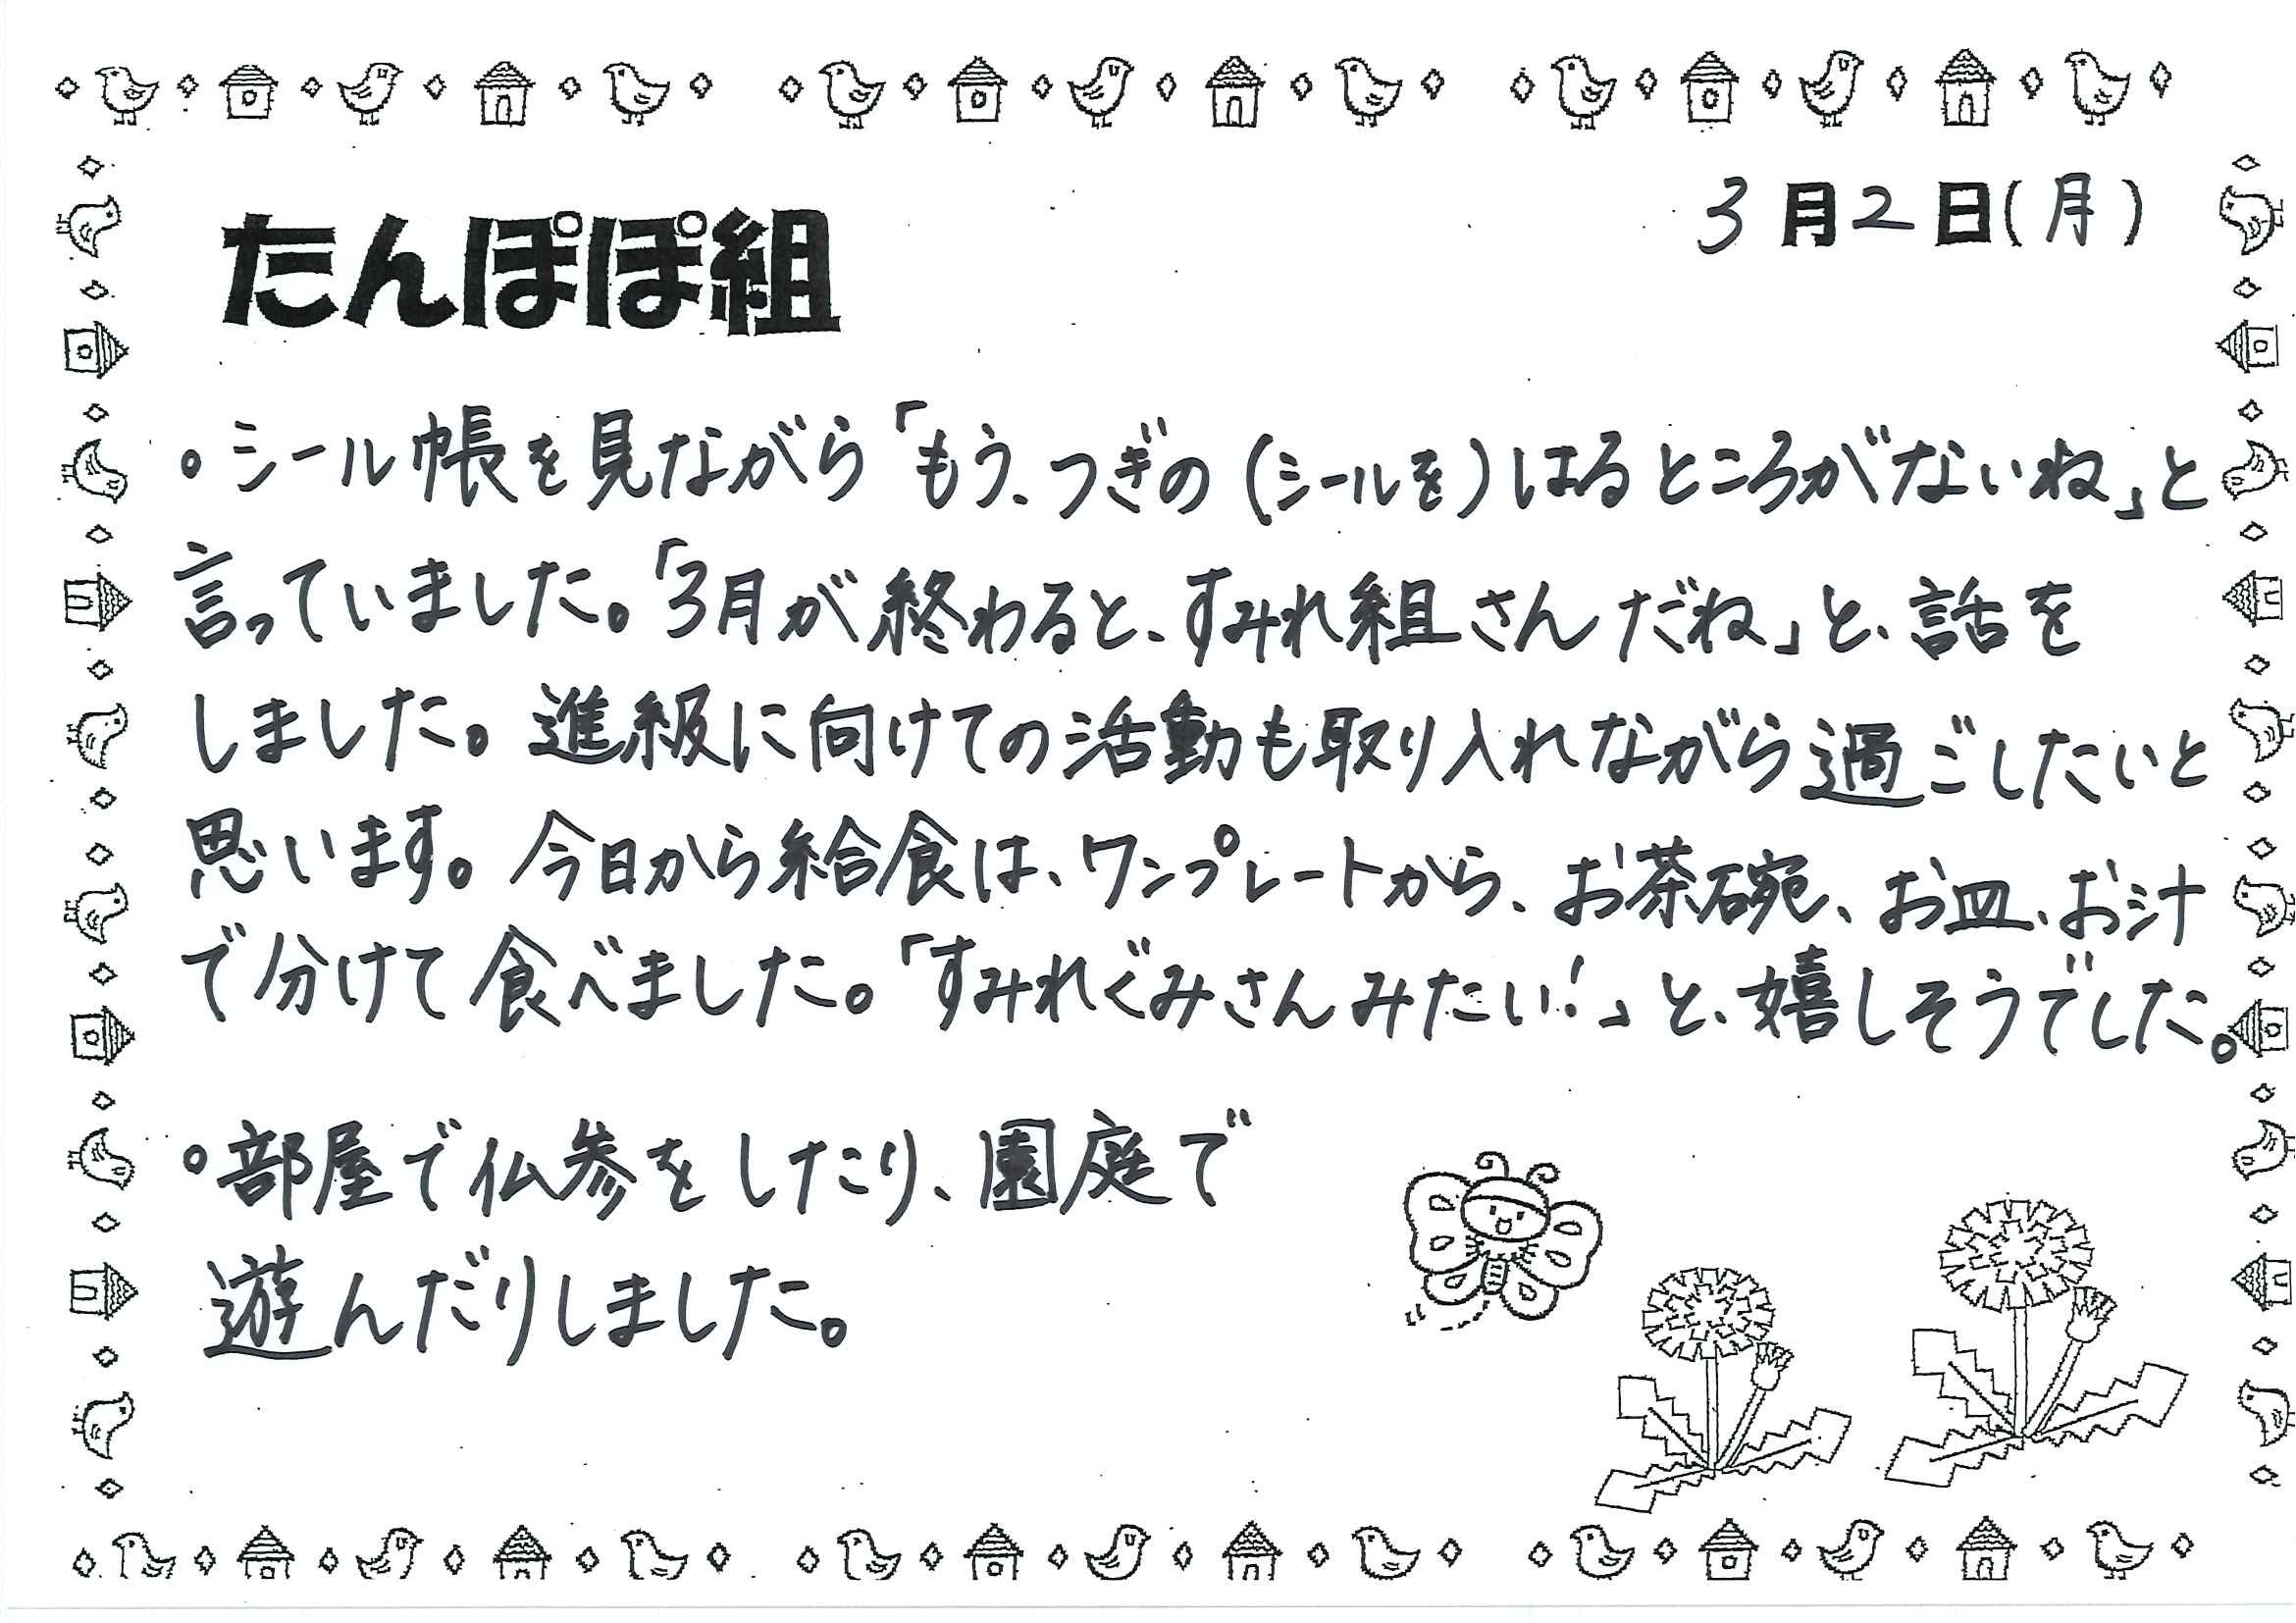 3月2日(月)
たんぽぽ組
○シール帳を見ながら「もう、つぎの(シールを)はるところがないね」と
言っていました。「3月が終わると、すみれ組さんだね」と、話を
しました。進級に向けての活動も取り入れながら過ごしたいと
思います。今日から給食は、ワンプレートから、お茶碗、お皿、お汁
で分けて食べました。「すみれぐみさんみたい!」と、嬉しそうでした。
○部屋で仏参をしたり、園庭で
遊んだりしました。